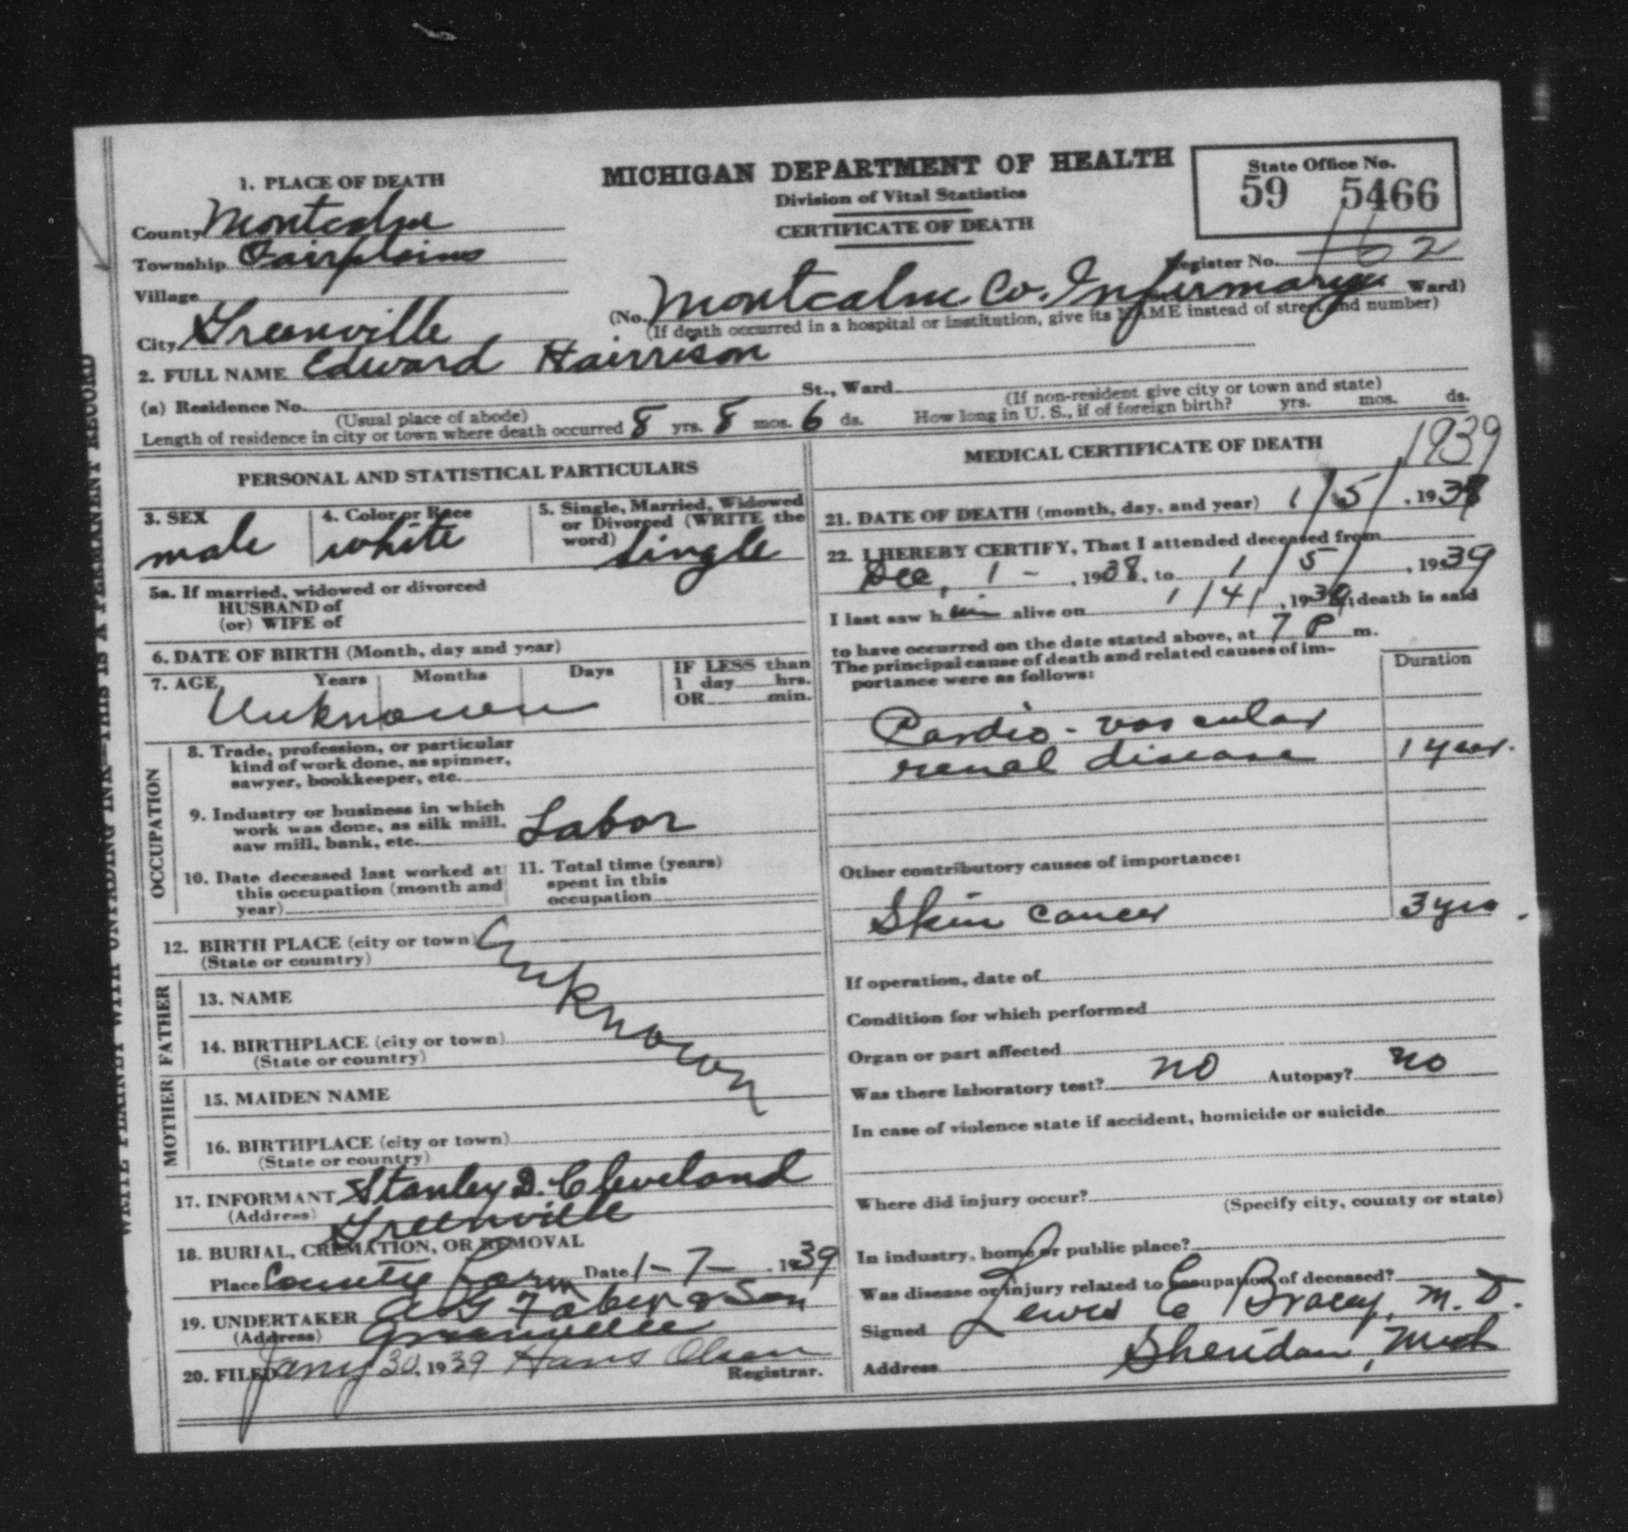 MICHIGAN DEPARTMENT OF HEALTH
Division of Vital Statistics
CERTIFICATE OF DEATH
State Office No.
59 5466
Register No. 2
1. PLACE OF DEATH
County Montcalm
Township Fairplains
Village
City Greenville
(No. Montcalm Co. Infirmary Ward)
(If death occurred in a hospital or institution, give its NAME instead of street and number)
2. FULL NAME Edward Hairrison
(a) Residence No. St., Ward
(Usual place of abode) (If non-resident give city or town and state)
Length of residence in city or town where death occurred 8 yrs. 8 mos. 6 ds. How long in U. S., if of foreign birth? yrs. mos. ds.
PERSONAL AND STATISTICAL PARTICULARS
3. SEX
male
4. Color or Race
white
5. Single, Married, Widowed
or Divorced (WRITE the
word) Single
5a. If married, widowed or divorced
HUSBAND of
(or) WIFE of
6. DATE OF BIRTH (Month, day and year)
7. AGE Years Months Days
Unknown
IF LESS than
1 day hrs.
OR min.
OCCUPATION
8. Trade, profession, or particular
kind of work done, as spinner,
sawyer, bookkeeper, etc.
9. Industry or business in which
work was done, as silk mill,
saw mill, bank, etc. Labor
10. Date deceased last worked at
this occupation (month and
year)
11. Total time (years)
spent in this
occupation
12. BIRTH PLACE (city or town)
(State or country)
Unknown
FATHER
13. NAME
14. BIRTHPLACE (city or town)
(State or country)
MOTHER
15. MAIDEN NAME
16. BIRTHPLACE (city or town)
(State or country)
17. INFORMANT Stanley D. Cleveland
(Address) Greenville
18. BURIAL, CREMATION, OR REMOVAL
Place County Farm Date 1-7-, 1939
19. UNDERTAKER A G Faber & Son
(Address) Greenville
20. FILED Jany 30, 1939 Hans Olsen
Registrar.
MEDICAL CERTIFICATE OF DEATH
1939
21. DATE OF DEATH (month, day, and year) 1/5/, 1938
22. I HEREBY CERTIFY, That I attended deceased from
Dec, 1-, 1938, to 1/5/, 1939
I last saw him alive on 1/4/, 1939; death is said
to have occurred on the date stated above, at 7 P m.
The principal cause of death and related causes of im-
portance were as follows:
Duration
Cardio-vascular
renal disease 1 year.
Other contributory causes of importance:
Skin cancer 3 yrs.
If operation, date of
Condition for which performed
Organ or part affected
Was there laboratory test? no Autopsy? no
In case of violence state if accident, homicide or suicide
Where did injury occur?
(Specify city, county or state)
In industry, home or public place?
Was disease or injury related to occupation of deceased?
Signed Lewis E Bracey, M. D.
Address Sheridan, Mich
WRITE PLAINLY WITH UNFADING INK—THIS IS A PERMANENT RECORD